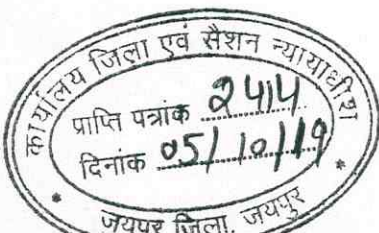 कार्यालय जिला एवं सैशन न्यायाधीश
प्राप्ति पत्रांक 2414
दिनांक 05/10/19
जयपुर जिला, जयपुर